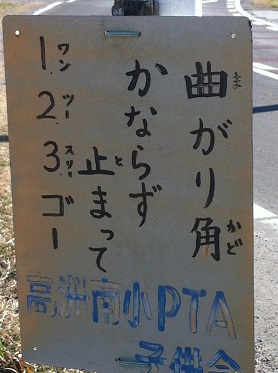 曲がり角
かならず
止まって
1 2 3 ゴー
ま
かど
と
ワン ツー スリー
高洲南小PTA
子供会